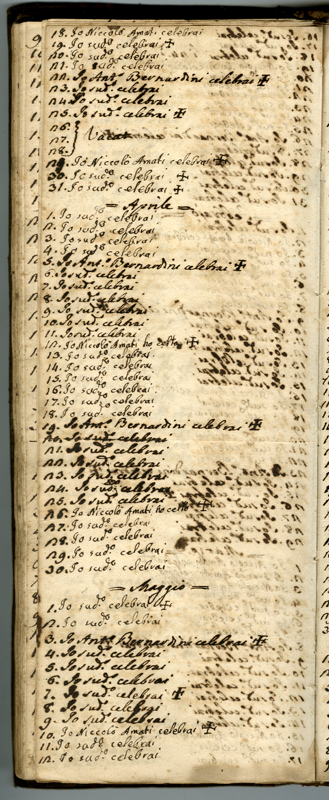 18. Io Niccolò Amati celebrai
19. Io sud.º celebrai ✠
20. Io sud.º celebrai
21. Io sud.º celebrai
22. Io Ant.º Bernardini celebrai ✠
23. Io sud.º celebrai
24. Io sud.º celebrai
25. Io sud.º celebrai ✠
26.
27. Vacat
28.
29. Io Niccolò Amati celebrai ✠
30. Io sud.º celebrai ✠
31. Io sud.º celebrai ✠
= Aprile =
1. Io sud.º celebrai
2. Io sud.º celebrai
3. Io sud.º celebrai
4. Io sud.º celebrai
5. Io Ant.º Bernardini celebrai ✠
6. Io sud.º celebrai
7. Io sud.º celebrai
8. Io sud.º celebrai
9. Io sud.º celebrai
10. Io sud.º celebrai
11. Io sud.º celebrai
12. Io Niccolò Amati ho ✠
13. Io sud.º celebrai
14. Io sud.º celebrai
15. Io sud.º celebrai
16. Io sud.º celebrai
17. Io sud.º celebrai
18. Io sud.º celebrai
19. Io Ant.º Bernardini celebrai ✠
20. Io sud.º celebrai
21. Io sud.º celebrai
22. Io sud.º celebrai
23. Io sud.º celebrai
24. Io sud.º celebrai
25. Io sud.º celebrai
26. Io Niccolò Amati ho ✠
27. Io sud.º celebrai
28. Io sud.º celebrai
29. Io sud.º celebrai
30. Io sud.º celebrai
= Maggio =
1. Io sud.º celebrai ✠
2. Io sud.º celebrai
3. Io Ant.º Bernardini celebrai ✠
4. Io sud.º celebrai
5. Io sud.º celebrai
6. Io sud.º celebrai
7. Io sud.º celebrai ✠
8. Io sud.º celebrai
9. Io sud.º celebrai
10. Io Niccolò Amati celebrai ✠
11. Io sud.º celebrai
12. Io sud.º celebrai